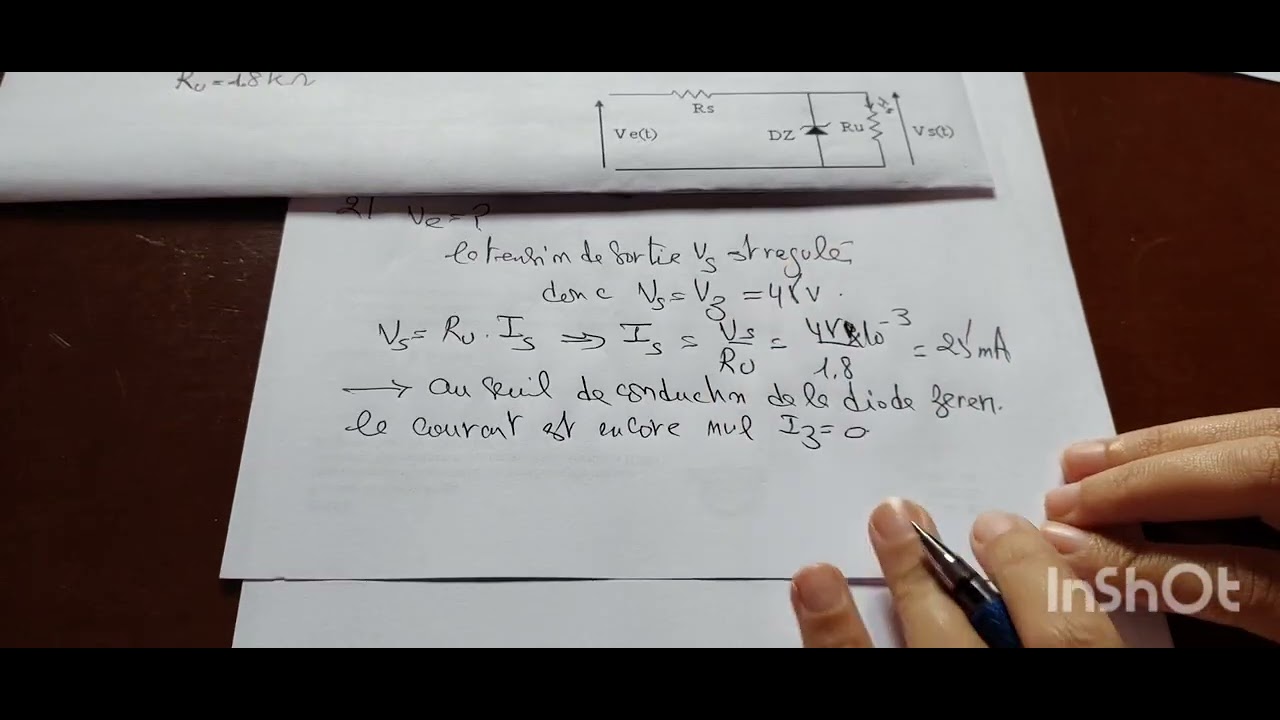 Ru = 1.8 kΩ
Rs
Ve(t)
DZ
Ru
Is
Vs(t)
2/ Ve = ?
la tension de sortie Vs est regulé
donc Vs = Vz = 45 V.
Vs = Ru . Is ⟹ Is = Vs/Ru = 45 × 10⁻³/1.8 = 25 mA
⟶ au seuil de conduction de la diode zener.
le courant est encore nul Iz = 0
InShOt